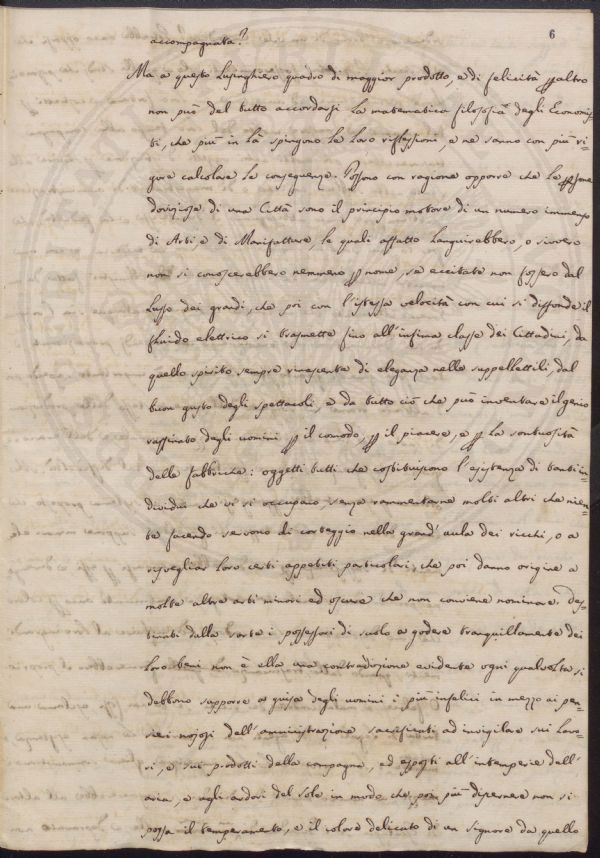 6
accompagnata?
Ma a questo lusinghiero quadro di maggior prodotto, e di felicità altro
non può del tutto accordarsi la matematica filosofia degli Economis-
ti, che più in là spingono le loro riflessioni, e ne sanno con più ri-
gore calcolare le conseguenze. Possono con ragione opporre che le
doviziose di una Città sono il principio motore di un numero immenso
di Arti, e di Manifatture, le quali affatto languirebbero, o sivvero
non si conoscerebbero nemmeno nome, se eccitate non fossero dal
lusso dei grandi, che poi con l'istessa velocità con cui si diffonde il
fluido elettrico si trasmette fino all'infima classe dei Cittadini, da
quello spirito sempre rinascente di eleganza nelle suppellettili, dal
buon gusto degli spettacoli, e da tutto ciò che può inventare il genio
raffinato degli uomini il comodo, il piacere, e la sontuosità
delle fabbriche: oggetti tutti che costituiscono l'esistenza di tanti in-
dividui che vi si occupano senza rammentarne molti altri che nien-
te facendo servono di corteggio nella grand'aula dei ricchi, o a
risvegliar loro certi appetiti particolari, che poi danno origine a
molte altre arti minori ed oscure che non conviene nominare. Des-
tinati dalla sorte i possessori di suolo a godere tranquillamente dei
loro beni non è ella una contradizione evidente ogni qualvolta si
debbono supporre a guisa degli uomini i più infelici in mezzo ai pen-
sieri nojosi dell'amministrazione, sacrificati ad invigilare sui lavo-
ri, e sui prodotti della campagna, ed esposti all'intemperie dell'
aria, e agli ardori del Sole in modo che poi più discernere non si
possa il temperamento, e il colore delicato di un Signore da quello